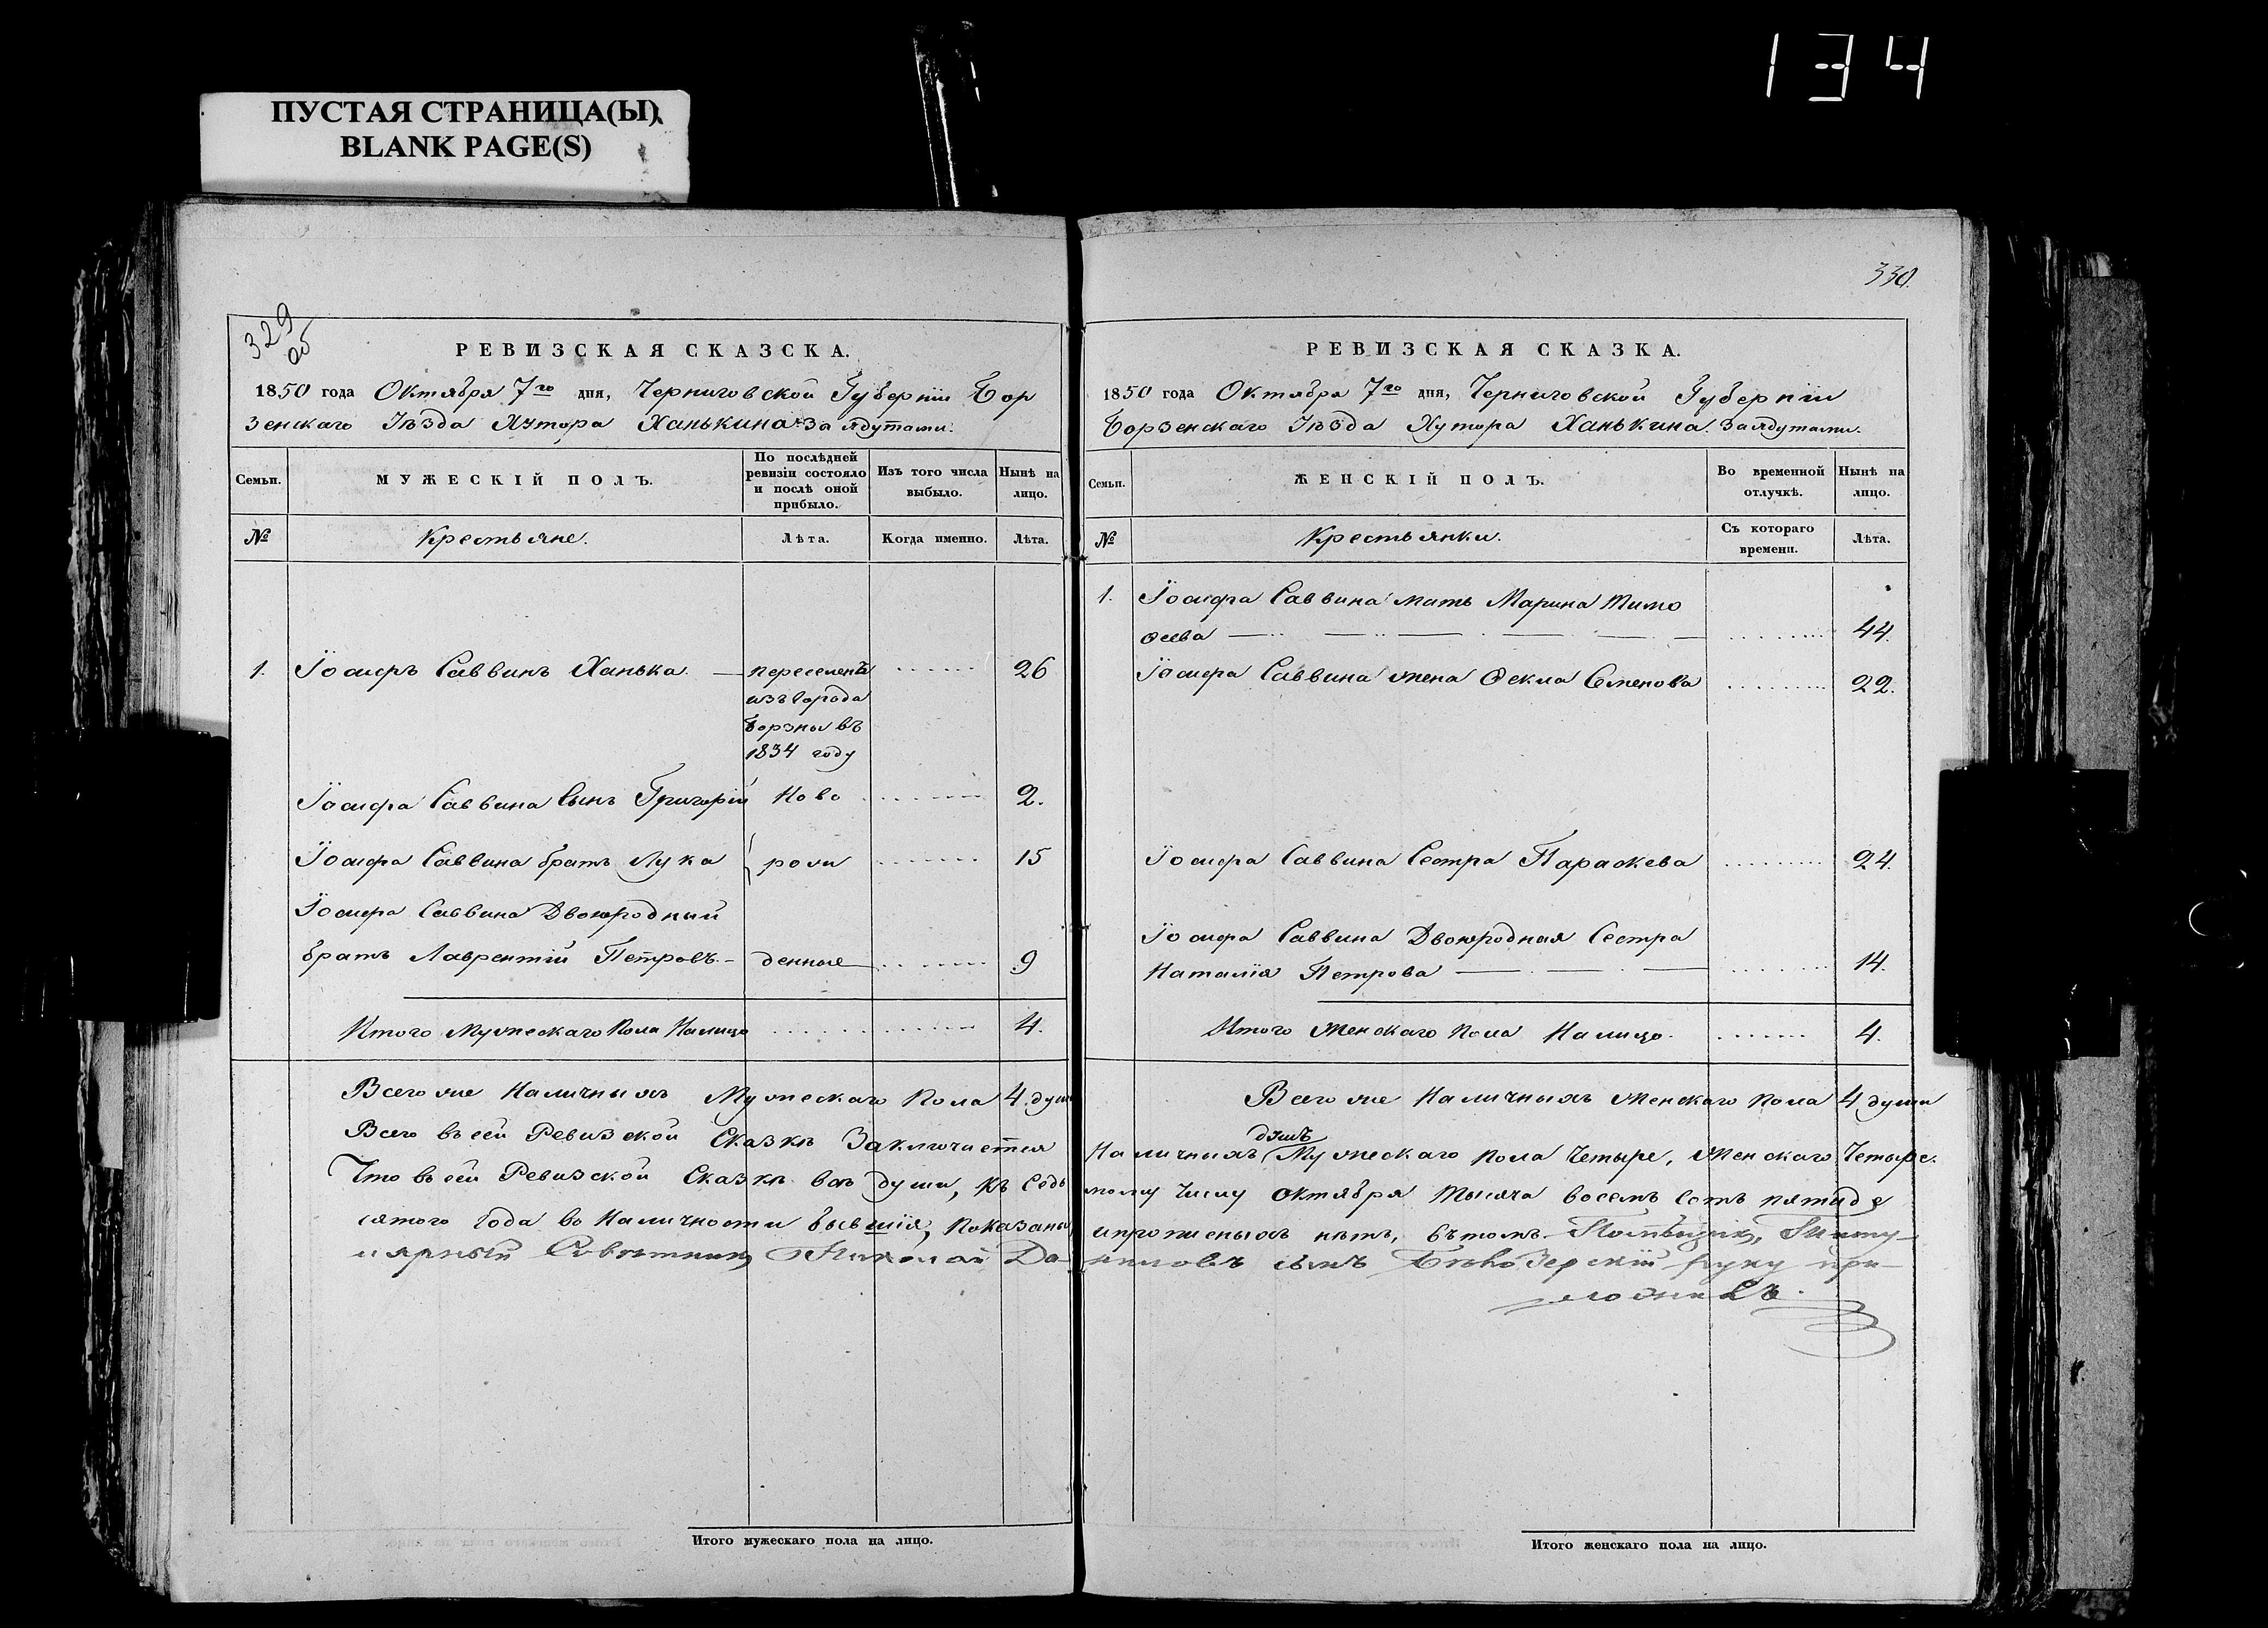 134
ПУСТАЯ СТРАНИЦА(Ы)
BLANK PAGE(S)
329 об
РЕВИЗСКАЯ СКАЗСКА.
1850 года Октября 7го дня, Черниговской Губерніи Бор
зенскаго Уѣзда Хутора Ханькина за Ядутами.
Семьи.
МУЖЕСКІЙ ПОЛЪ.
По послѣдней ревизіи состояло и послѣ оной прибыло.
Изъ того числа выбыло.
Нынѣ на лицо.
№
Крестьяне.
Лѣта.
Когда именно.
Лѣта.
1. Іосифъ Саввинъ Ханька. переселенъ 26
изъ города
Борзны въ
1834 году
Іосифа Саввина Сынъ Григорій Ново 2.
Іосифа Саввина братъ Лука рож 15
Іосифа Саввина Двоюродный
братъ Лаврентій Петровъ. денные 9
Итого Мужескаго Пола Налицо 4.
Всего же Наличныхъ Мужескаго Пола 4 души
Всего въ сей Ревизской Сказкѣ Заключается
Что въ сей Ревизской Сказкѣ всѣ души, къ Седь
сятого года во Наличности бывшія, показаны
улярный Совѣтникъ Николай Да-
Итого мужескаго пола на лицо.
330.
РЕВИЗСКАЯ СКАЗКА.
1850 года Октября 7го дня, Черниговской Губерніи
Борзенскаго Уѣзда Хутора Ханькина за Ядутами.
Семьи.
ЖЕНСКІЙ ПОЛЪ.
Во временной отлучкѣ.
Нынѣ на лицо.
№
Крестьянки.
Съ котораго времени.
Лѣта.
1. Іосифа Саввина мать Марина Тимо
ѳеева 44.
Іосифа Саввина жена Ѳекла Семенова 22.
Іосифа Саввина Сестра Параскева 24.
Іосифа Саввина Двоюродная Сестра
Наталія Петрова 14.
Итого Женскаго пола Налицо. 4.
Всего же Наличныхъ Женскаго пола 4 души
душъ
Наличныхъ Мужескаго пола Четыре, Женскаго Четыре.
мому Числу Октября тысяча восемь сотъ пятиде
и прописныхъ нѣтъ, въ томъ Помѣщикъ, Титу-
ниловъ сынъ Бѣлозерскій руку при-
ложилъ.
Итого женскаго пола на лицо.